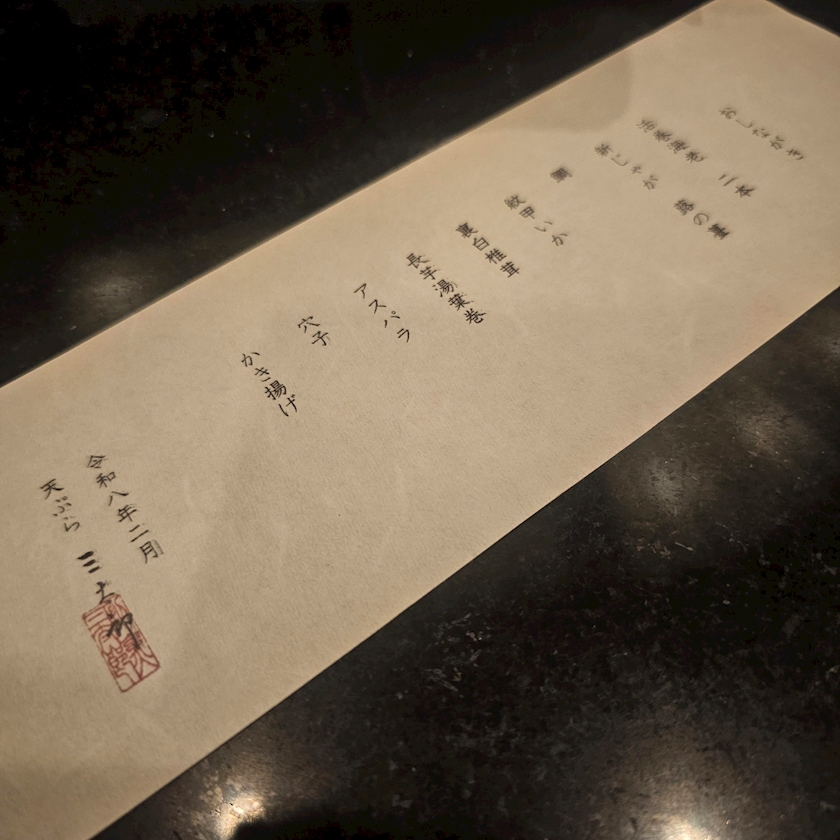 おしながき
活巻海老 二本
蕗の薹
新じゃが
鯛
紋甲いか
裏白椎茸
長芋湯葉巻
アスパラ
穴子
かき揚げ
令和八年二月
天ぷら 三太郎